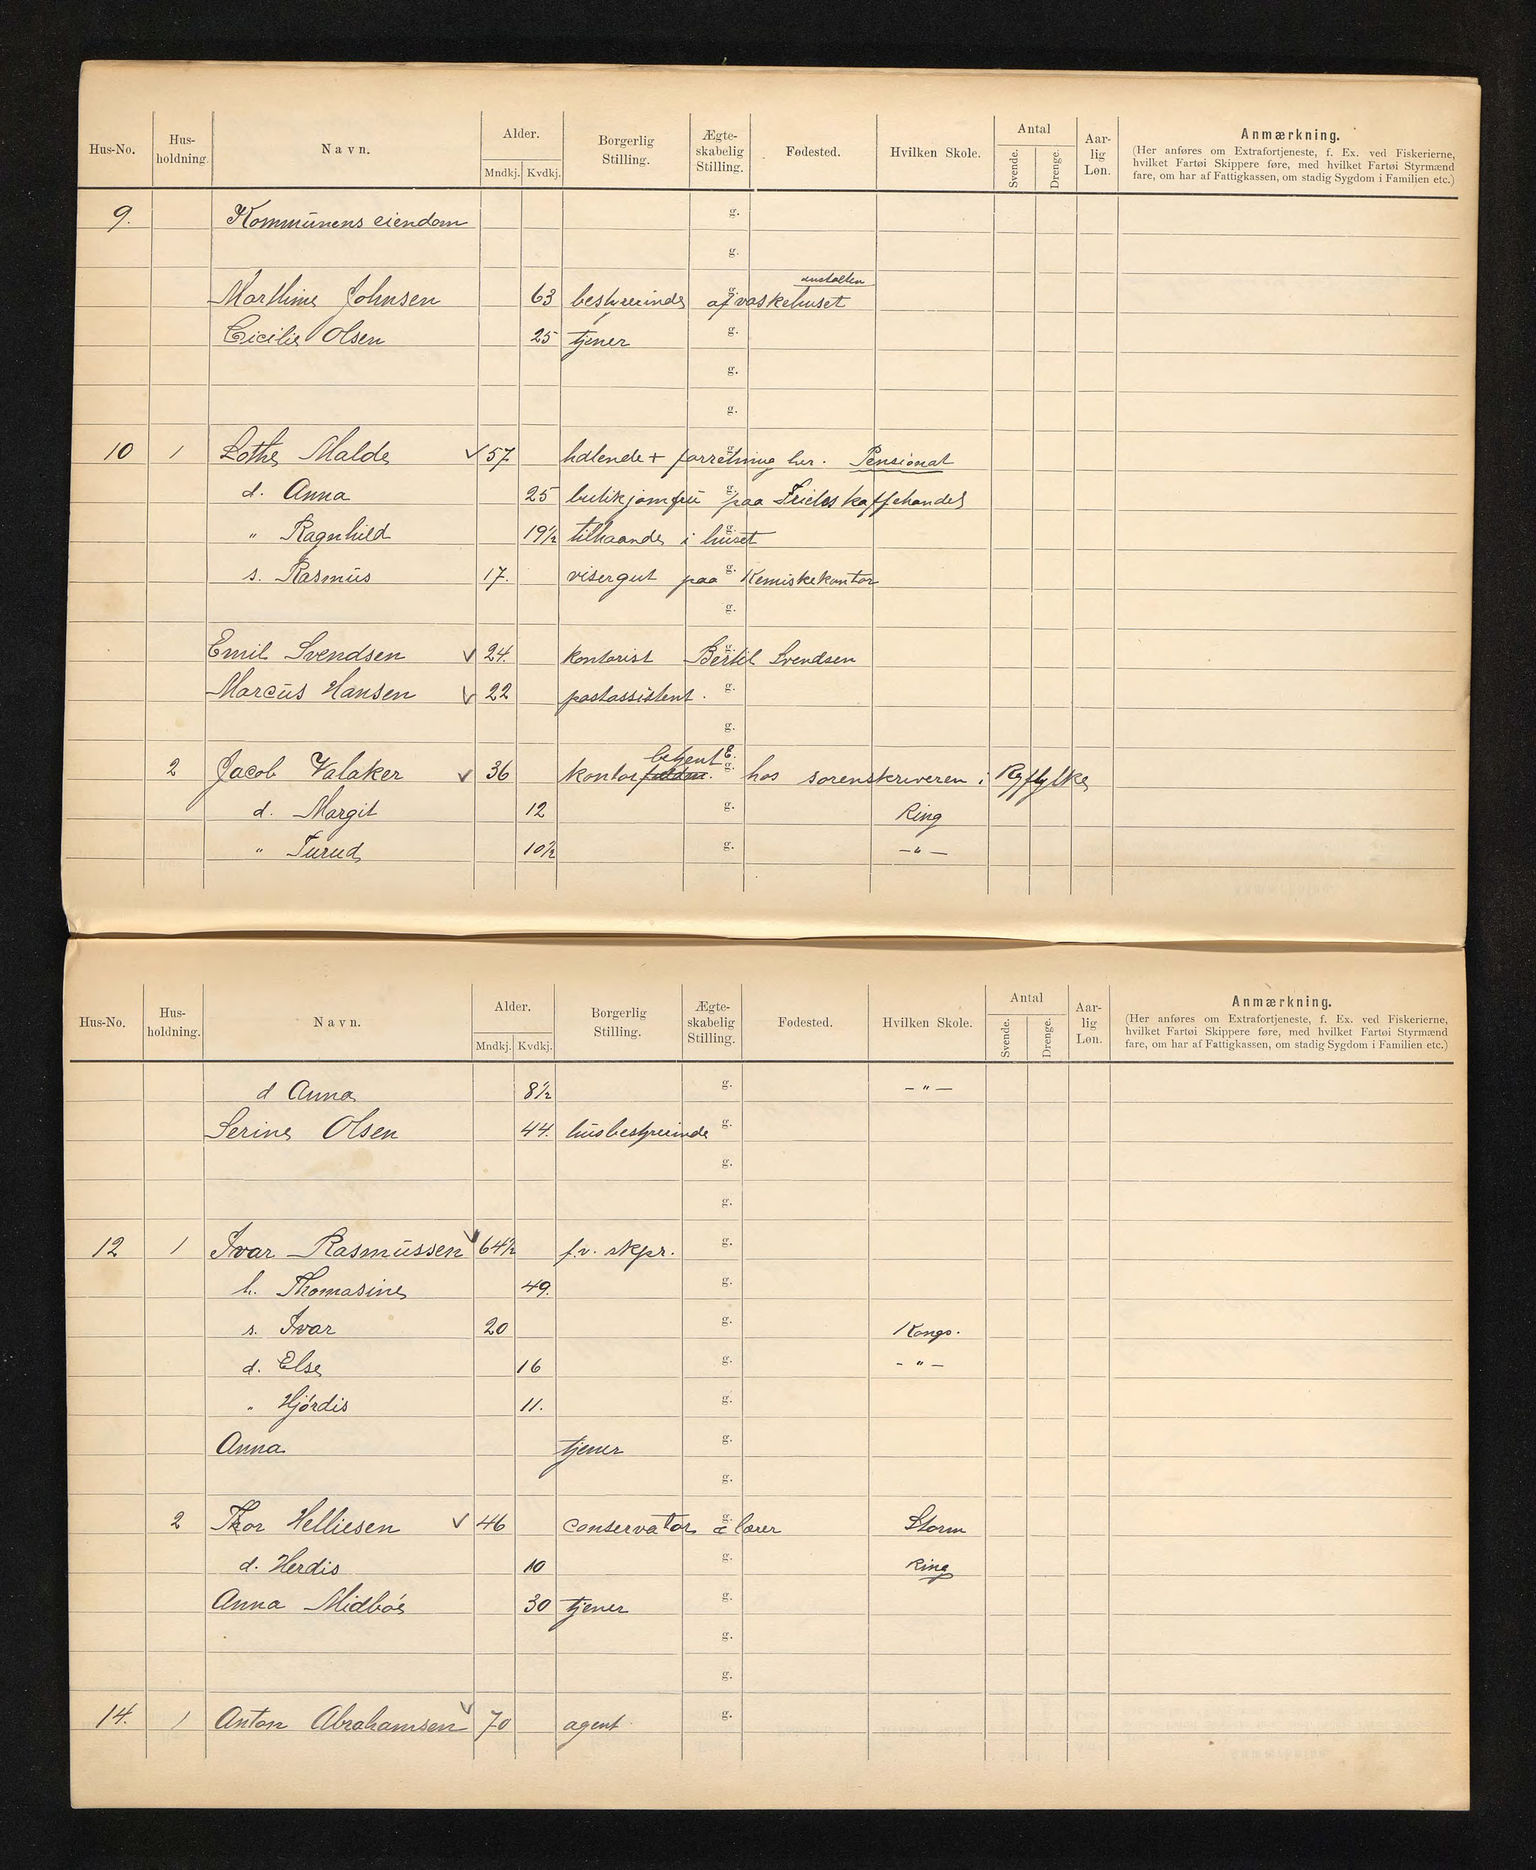 Hus-No. Hus-holdning. Navn. Alder. Mndkj. Kvdkj. Borgerlig Stilling. Ægte-skabelig Stilling. Fødested. Hvilken Skole. Antal Svende. Drenge. Aar-lig Løn. Anmærkning.
(Her anføres om Extrafortjeneste, f. Ex. ved Fiskerierne, hvilket Fartøi Skippere føre, med hvilket Fartøi Styrmænd fare, om har af Fattigkassen, om stadig Sygdom i Familien etc.)
9. Kommunens eiendom g.
g.
anstalten
Marthine Johnsen 63 bestyrerinde g. af vaskehuset
Cicilie Olsen 25 tjener g.
g.
g.
10 1 Lothe Malde ✓ 57 hdlende + forretning her. g. Pensionat
d. Anna 25 butikjomfru g. paa kaffehandel
" Ragnhild 19½ tilhaande i huset g.
s. Rasmus 17. visergut paa g. Kemiskekontor
g.
Emil Svendsen ✓ 24. kontorist g. Bertil Svendsen
Marcus Hansen ✓ 22 postassistent. g.
g.
betjent E.
2 Jacob Valaker ✓ 36 kontorfuldm. g. hos sorenskriveren i Ryfylke
d. Margit 12 g. Ring
" Turud 10½ g. –"–
Hus-No. Hus-holdning. Navn. Alder. Mndkj. Kvdkj. Borgerlig Stilling. Ægte-skabelig Stilling. Fødested. Hvilken Skole. Antal Svende. Drenge. Aar-lig Løn. Anmærkning.
(Her anføres om Extrafortjeneste, f. Ex. ved Fiskerierne, hvilket Fartøi Skippere føre, med hvilket Fartøi Styrmænd fare, om har af Fattigkassen, om stadig Sygdom i Familien etc.)
d Anna 8½ g. –"–
Serine Olsen 44. husbestyrerinde g.
g.
g.
12 1 Ivar Rasmussen ✓ 64½ f.v. skpr. g.
h. Thomasine 49. g.
s. Ivar 20 g. Kongs.
d. Else 16 g. –"–
" Hjórdis 11. g.
Anna tjener g.
g.
2 Thor Helliesen ✓ 46 conservator & lærer g. Storm
d. Herdis 10 g. Ring
Anna Midbóe 30 tjener g.
g.
g.
14. 1 Anton Abrahamsen ✓ 70 agent g.